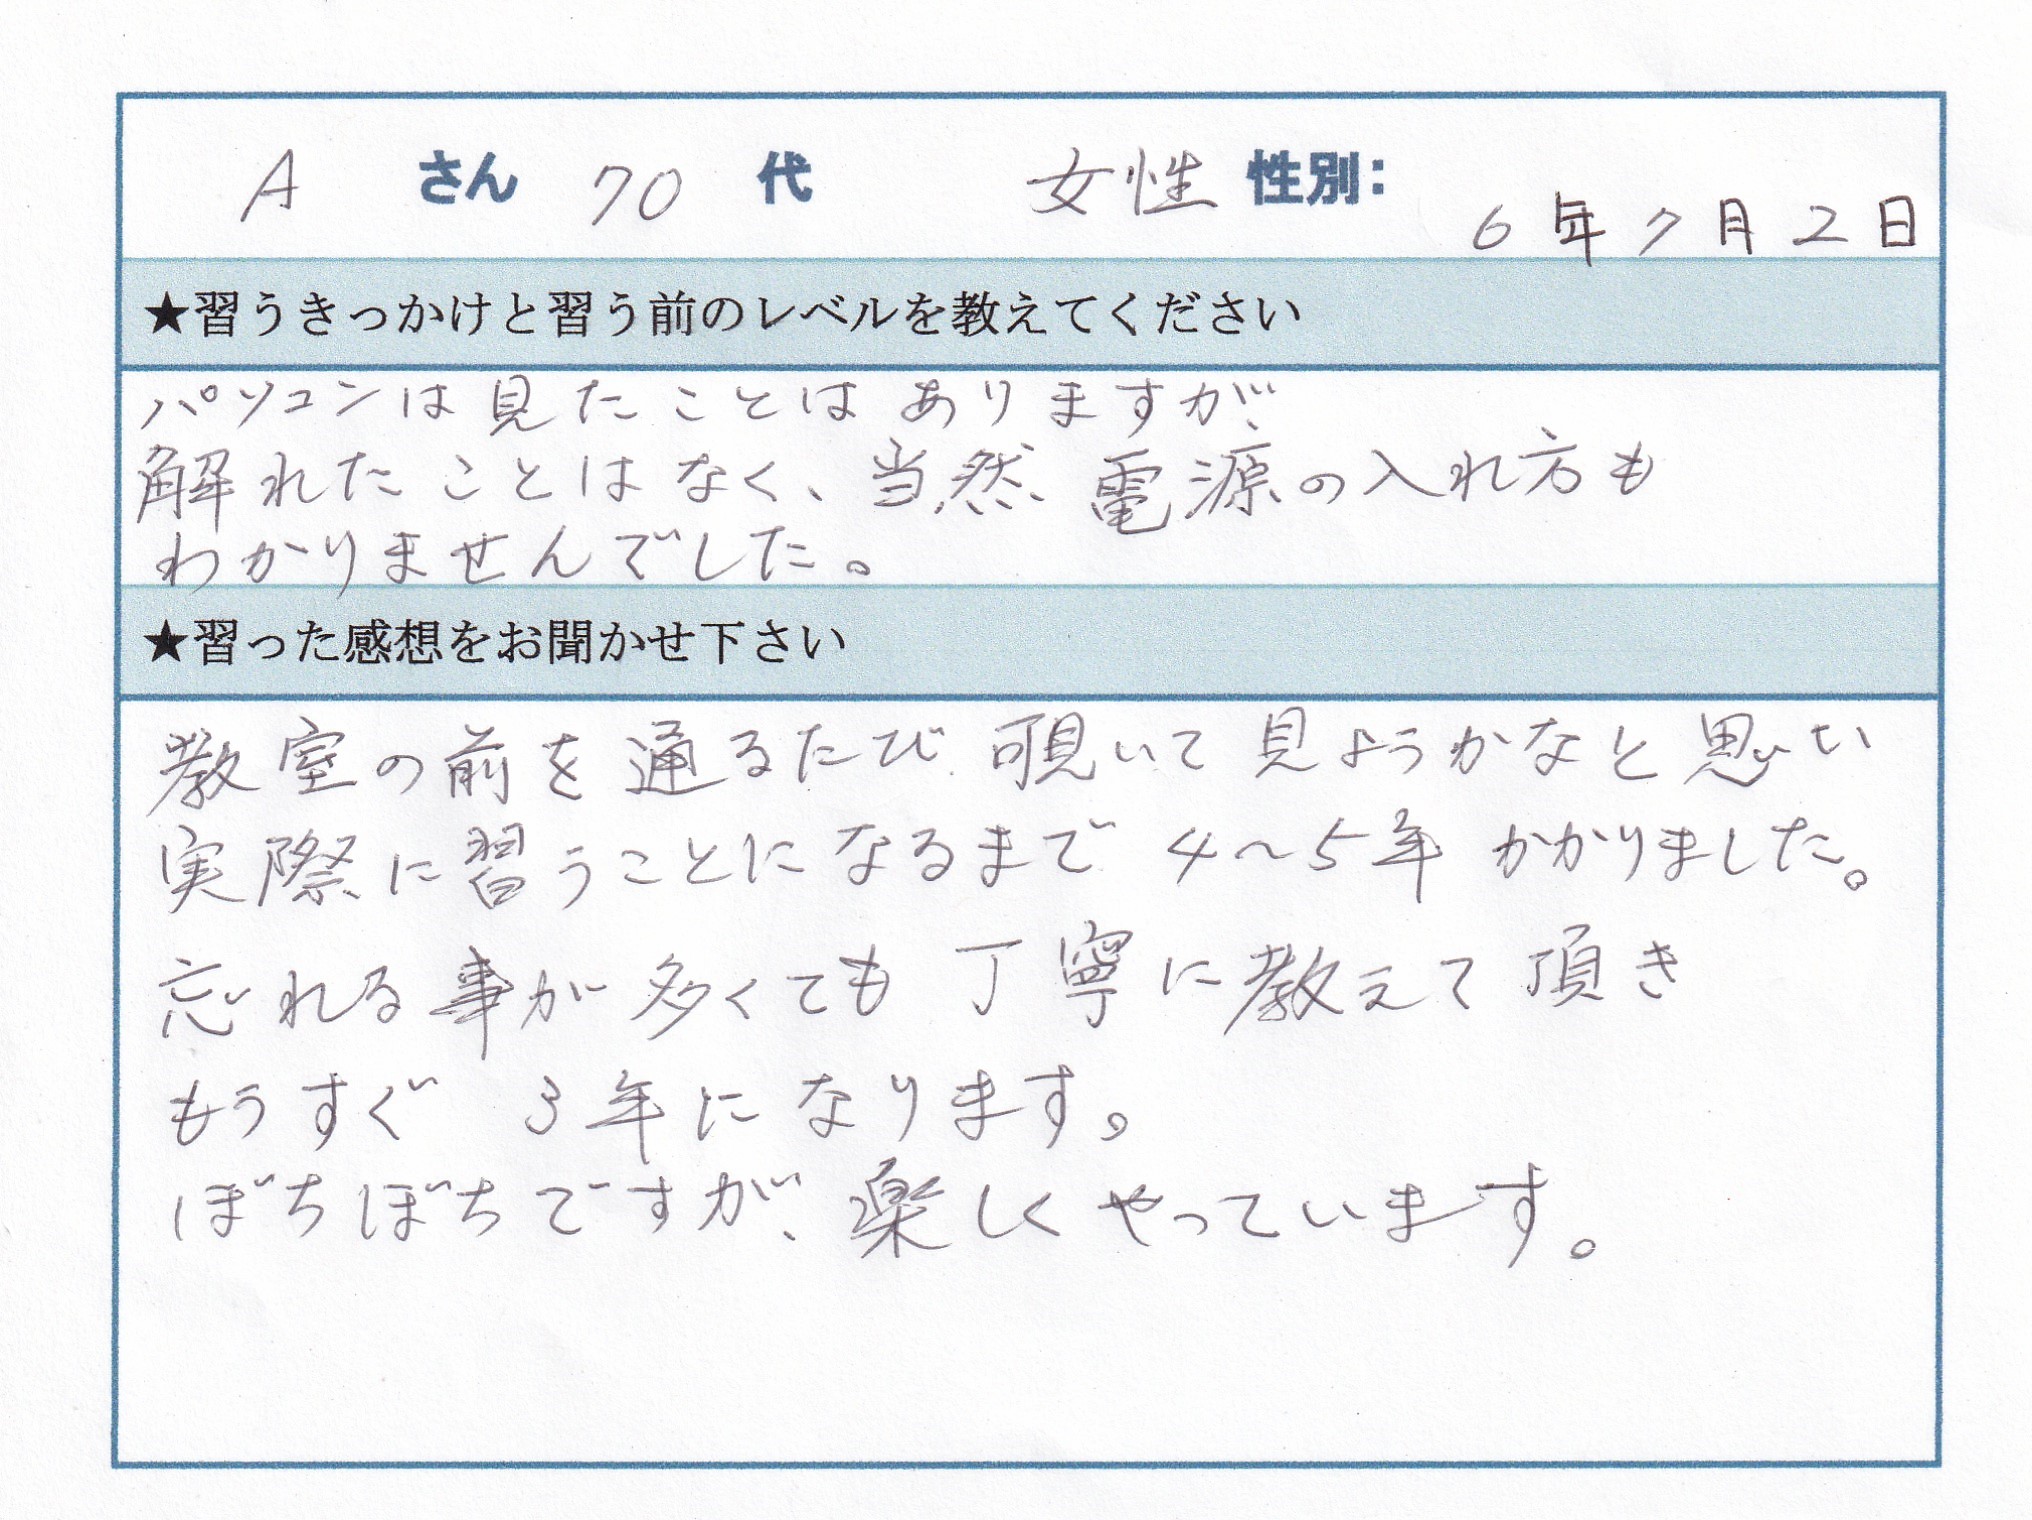 A さん 70 代 女性 性別： 6年7月2日
★習うきっかけと習う前のレベルを教えてください
パソコンは見たことはありますが、
解れたことはなく、当然、電源の入れ方も
わかりませんでした。
★習った感想をお聞かせ下さい
教室の前を通るたび、覗いて見ようかなと思い
実際に習うことになるまで 4～5年 かかりました。
忘れる事が多くても丁寧に教えて頂き
もうすぐ 3年になります。
ぼちぼちですが、楽しくやっています。